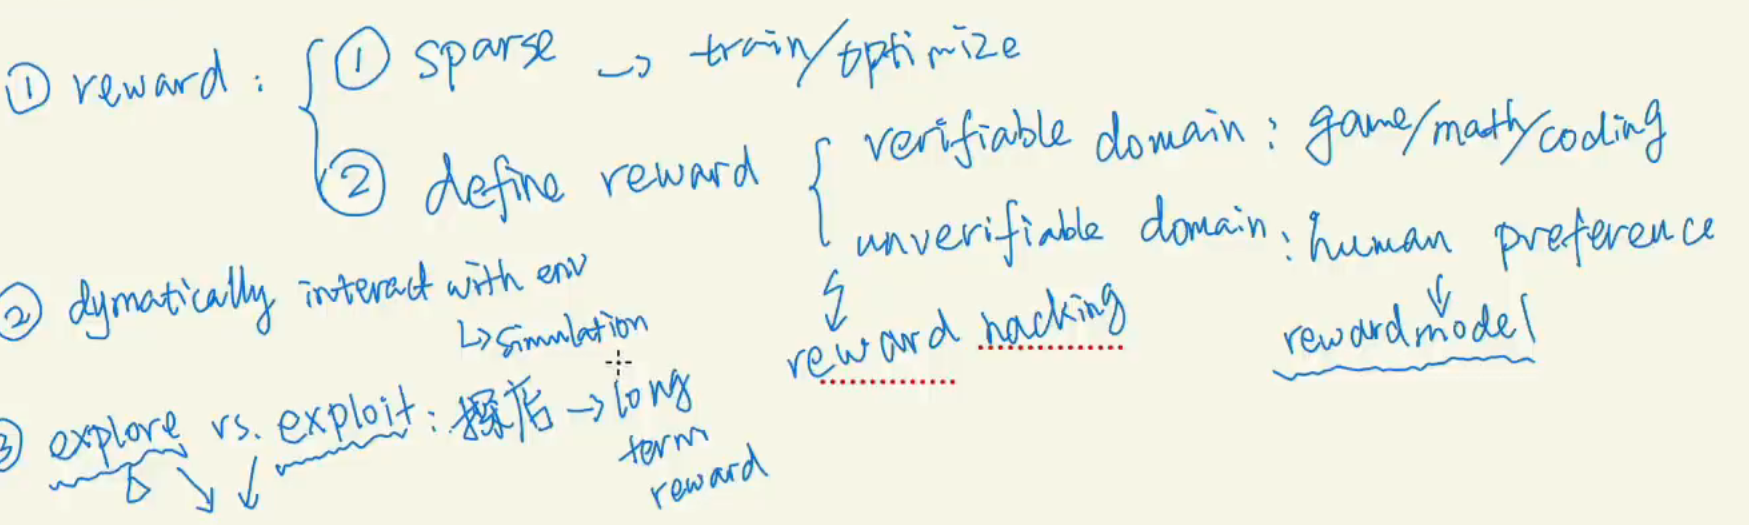 ① reward : { ① sparse → train/optimize
② define reward { verifiable domain : game/math/coding
unverifiable domain : human preference
↓ reward hacking
↓ rewardmodel
② dymatically interact with env
↳ simulation
③ explore vs. exploit : 探店 → long
term
reward